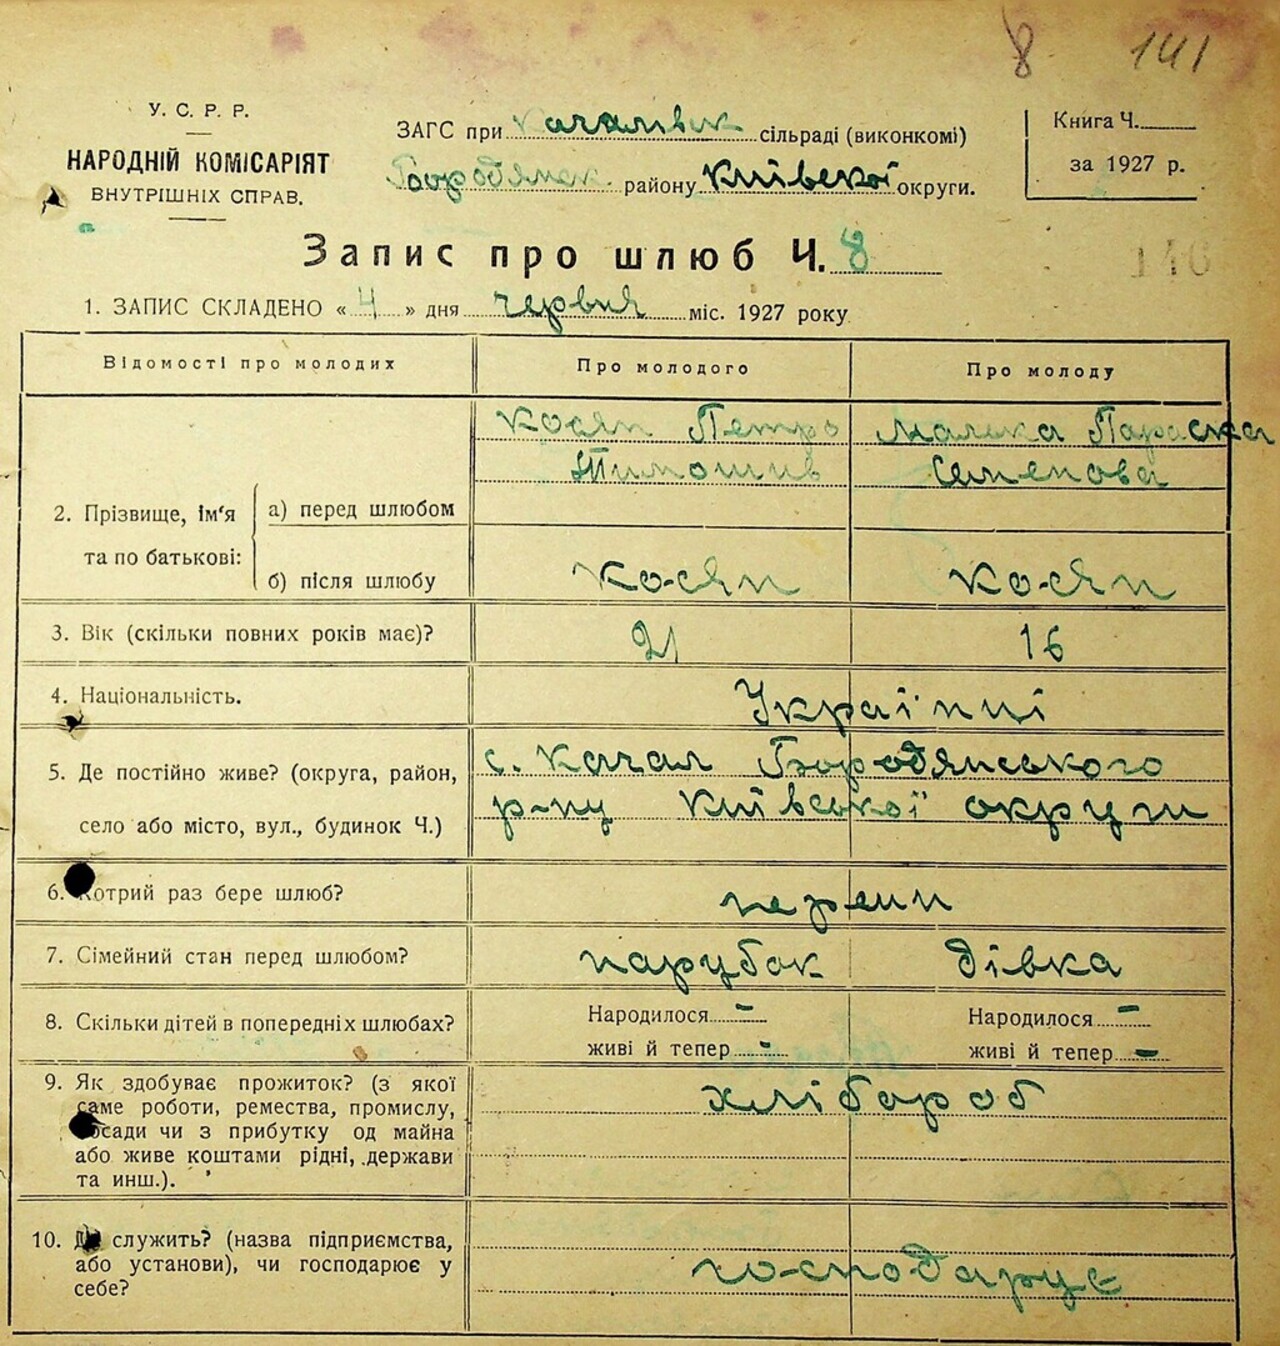 8 141
У. С. Р. Р.
НАРОДНІЙ КОМІСАРІЯТ
ВНУТРІШНІХ СПРАВ.
ЗАГС при Качалівск сільраді (виконкомі)
Бородянск. району Київскої округи.
Книга Ч.
за 1927 р.
Запис про шлюб Ч. 8
140
1. ЗАПИС СКЛАДЕНО « 4 » дня червня міс. 1927 року
Відомості про молодих
Про молодого
Про молоду
2. Прізвище, ім'я та по батькові:
а) перед шлюбом
Косян Петро
Тимошив
Малька Параска
Семенова
б) після шлюбу
Косян
Косян
3. Вік (скільки повних років має)?
21
16
4. Національність.
Українці
5. Де постійно живе? (округа, район,
село або місто, вул., будинок Ч.)
с. Качал Бородянського
р-ну Київської округи
6. Котрий раз бере шлюб?
7. Сімейний стан перед шлюбом?
парубок
дівка
8. Скільки дітей в попередніх шлюбах?
Народилося -
живі й тепер -
Народилося -
живі й тепер -
9. Як здобуває прожиток? (з якої
саме роботи, ремества, промислу,
посади чи з прибутку од майна
або живе коштами рідні, держави
та инш.).
хлібароб
10. Де служить? (назва підприємства,
або установи), чи господарює у
себе?
господарує